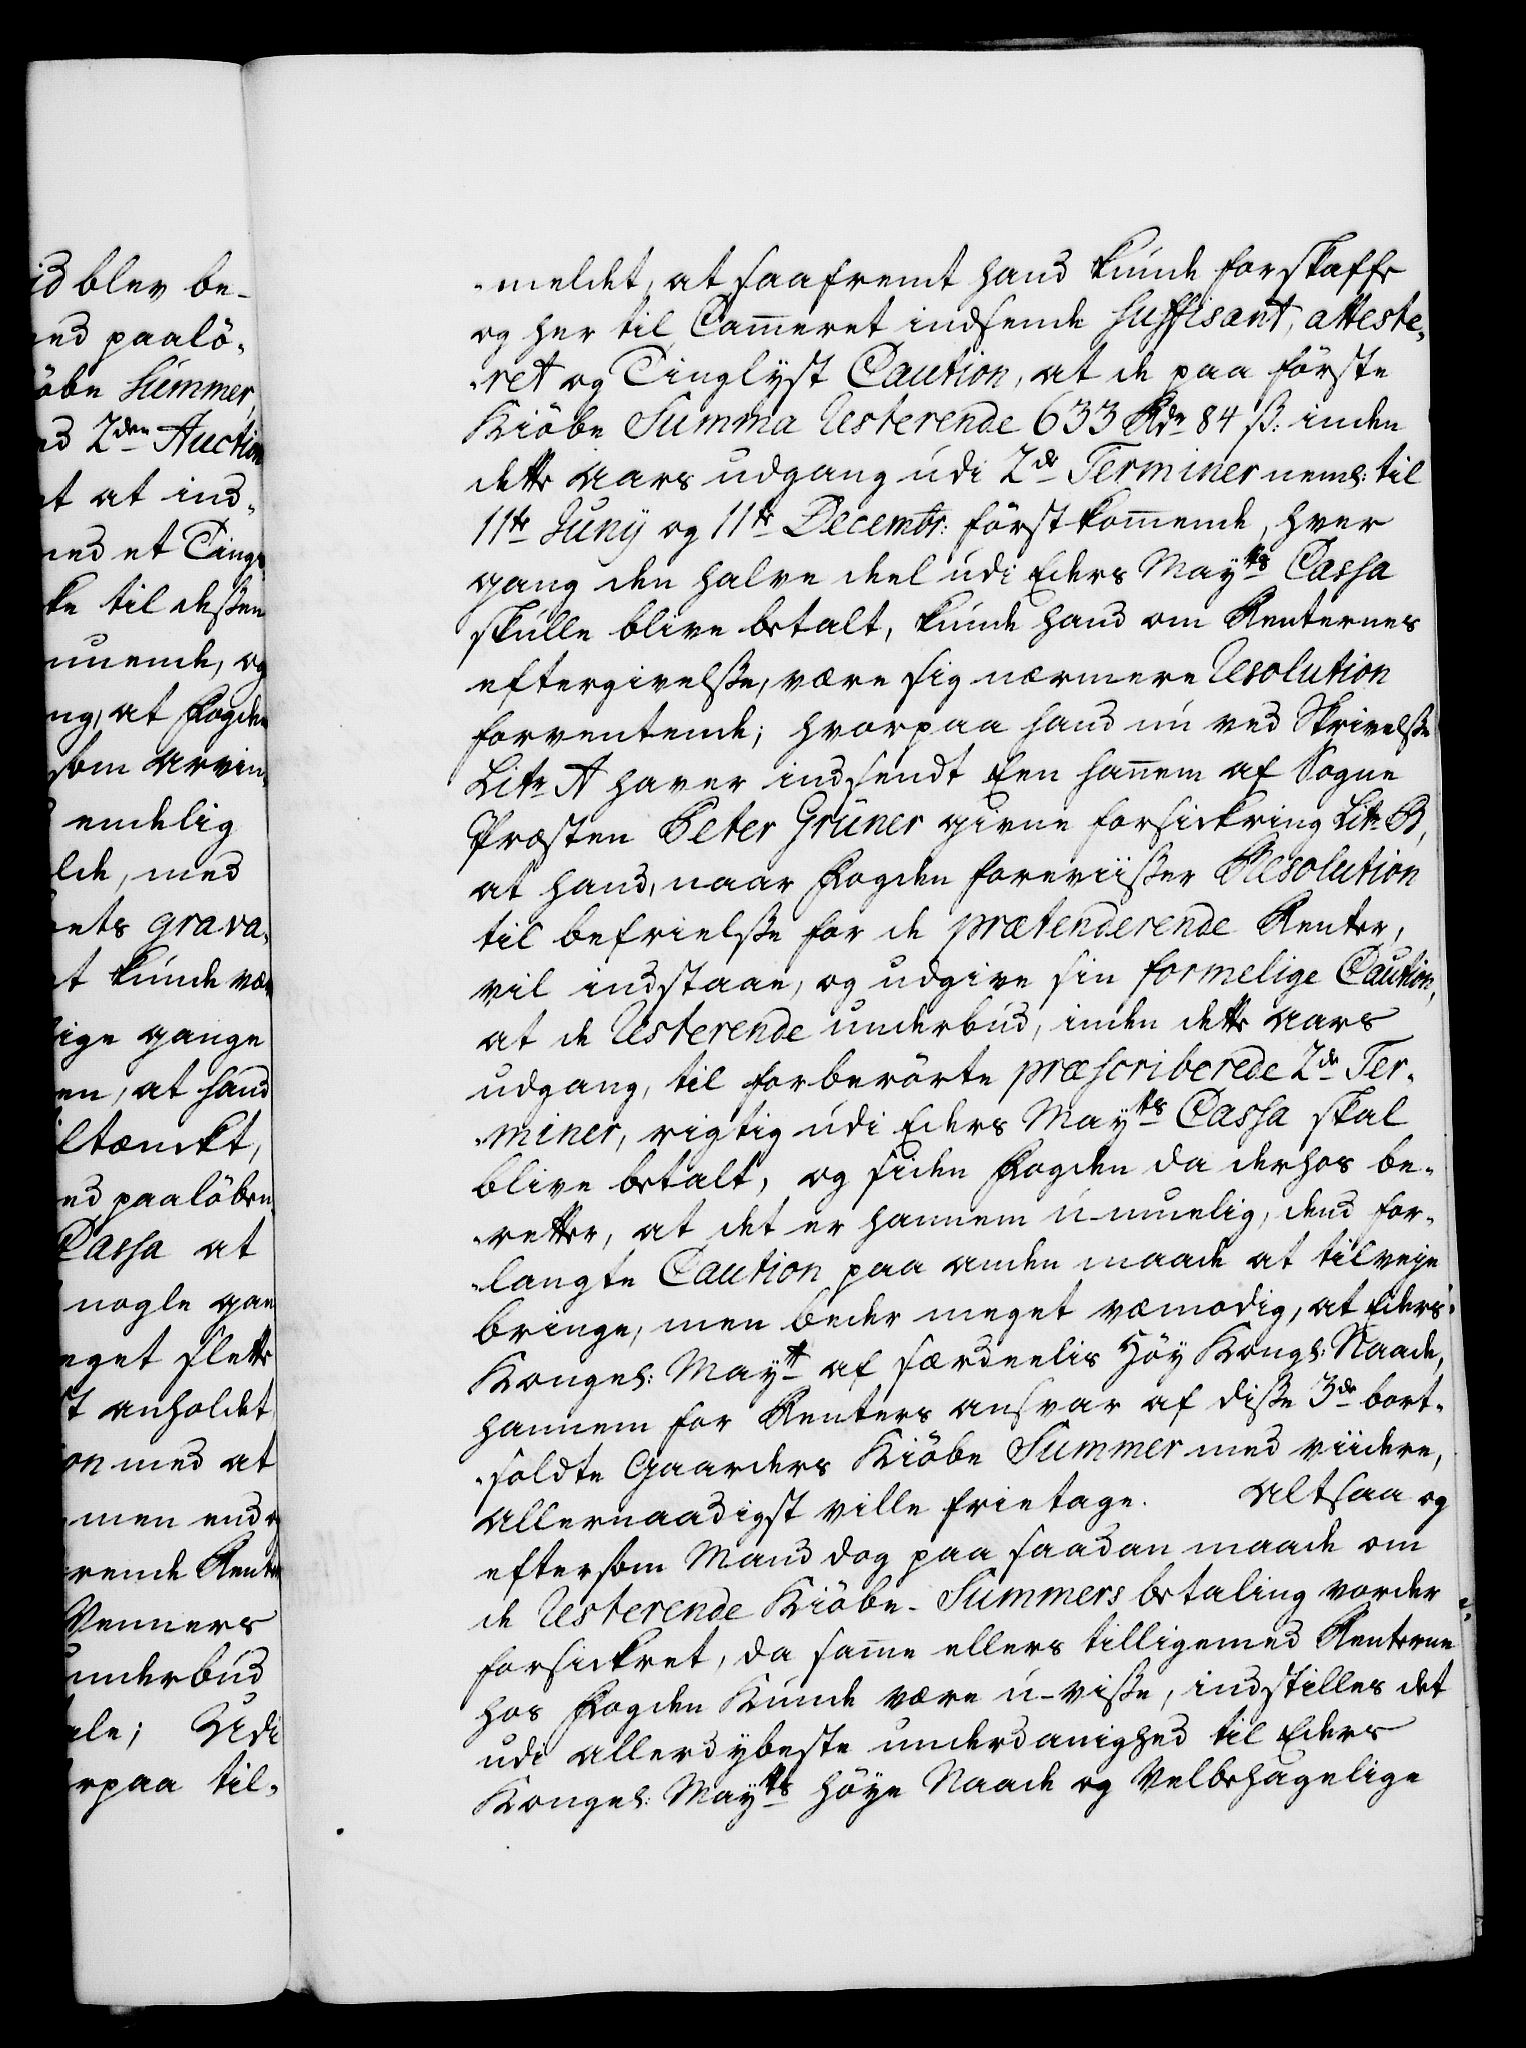 id blev be-
ed paalö-
öbe Summer,
nd 2den Auction
t at ind-
med et Ting
ke til dessen
nuende, og
ng, at Fogden
som arvin
endelig
lde, med
ets grava-
t kunde væ
ige gange
en, at hand
ltænckt,
ed paalöben
Cassa at
nogle gan
eget slette
t anholdet
on med at
men end
rende Rente
Venners
underbud
ale; Udi
rpaa til-
-meldet, at saafremt hand kunde forskaffe
og her til Cam̅eret indsende suffisant, atteste-
-ret og Tinglyst Caution, at de paa förste
Kiöbe Summa Resterende 633 Rdr 84 ß: inden
dette aars udgang udi 2de Terminer neml: til
11te Juny og 11te Decembr: förstkom̅ende, hver
gang den halve deel udi Eders Mayts Cassa
skulle blive betalt, kunde hand om Renternes
eftergivelsse, være sig nærmere Resolution
forventende; hvorpaa hand nu ved Skrivelsse
Litr A haver indsendt Een han̅em af Sogne
Præsten Peter Grüner givne forsickring Litr B,
at hand, naar Fogden foreviisser Resolution
til befrielsse for de prætenderende Renter,
vil indstaae, og udgive sin formelige Caution,
at de Resterende underbud, inden dette aars
udgang, til forberörte præscriberede 2de Ter-
-miner, rigtig udi Eders Mayts Cassa skal
blive betalt, og siden Fogden da derhos be-
-retter, at det er hannem u-muelig, dend for-
-langte Caution paa anden maade at tilveye
bringe, men beder meget væmodig, at Eders
Kongel: Mayt af særdeelis Höy Kongl: Naade,
hannem for Renters ansvar af disse 3de bort-
-soldte Gaarders Kiöbe Summer med viidere,
allernaadigst ville frietage. Altsaa og
eftersom Mand dog paa saadan maade om
de Resterende Kiöbe-Summers betaling vorder
forsickret, da sam̅e ellers tilligemed Renterne
hos Fogden Kunde være u-visse, indstilles det
udi allerdybeste underdanighed til Eders
Kongel: Mayts höye Naade og Velbehagelige